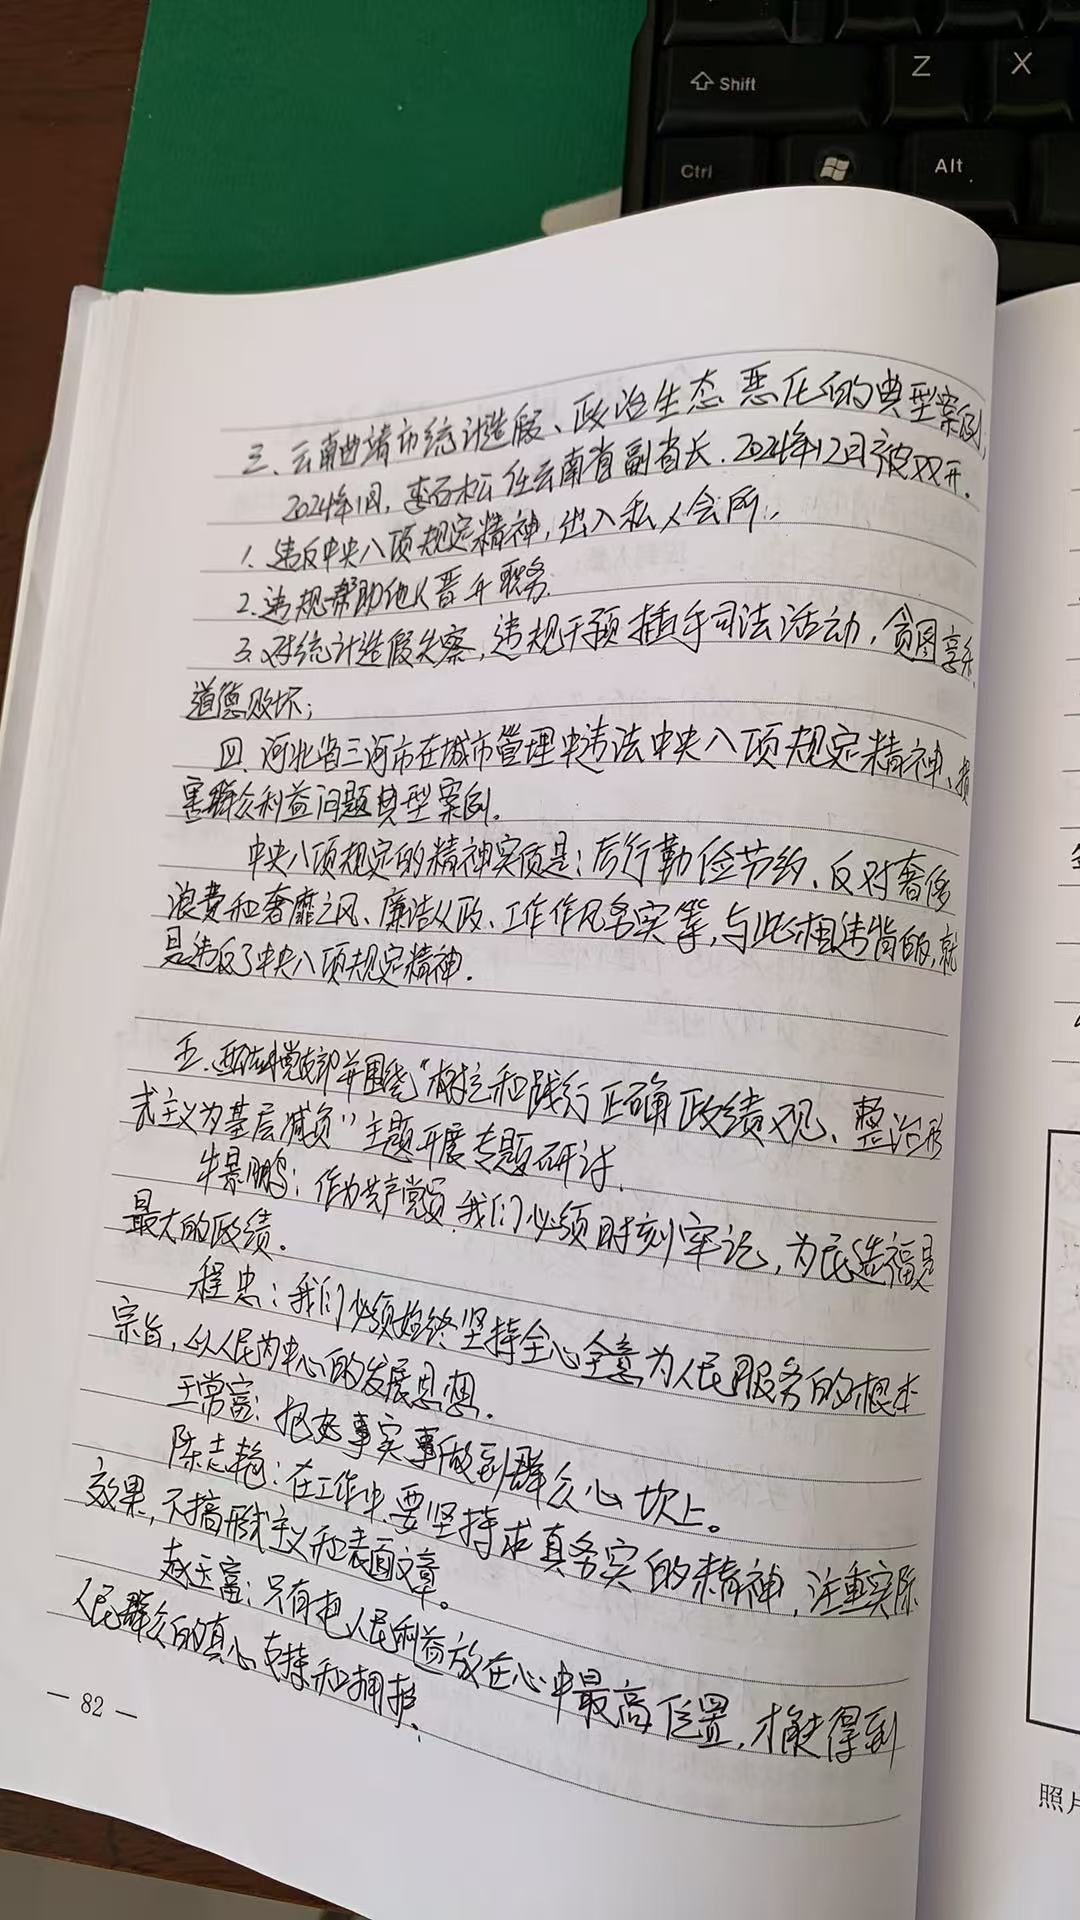 Shift
Z
X
Ctrl
Alt
三、云南曲靖市统计造假、政治生态恶化的典型案例;
2024年1月,李石松任云南省副省长.2024年12月被双开.
1、违反中央八项规定精神,出入私人会所;
2.违规帮助他人晋升职务.
3.对统计造假失察,违规干预插手司法活动,贪图享乐.
道德败坏;
四、河北省三河市在城市管理中违法中央八项规定精神、损
害群众利益问题典型案例.
中央八项规定的精神实质是:厉行勤俭节约、反对奢侈
浪费和奢靡之风、廉洁从政、工作作风务实等,与此相违背的,就
是违反了中央八项规定精神.
五、党支部并围绕“树立和践行正确政绩观、整治形
式主义为基层减负”主题开展专题研讨.
牛景鹏:作为共产党员,我们必须时刻牢记,为民造福是
最大的政绩。
程忠:我们必须始终坚持全心全意为人民服务的根本
宗旨,以人民为中心的发展思想.
王常富:把好事实事做到群众心坎上。
陈志艳:在工作中,要坚持求真务实的精神,注重实际
效果,不搞形式主义和表面文章。
赵玉富:只有把人民利益放在心中最高位置,才能得到
人民群众的真心支持和拥护.
— 82 —
照片